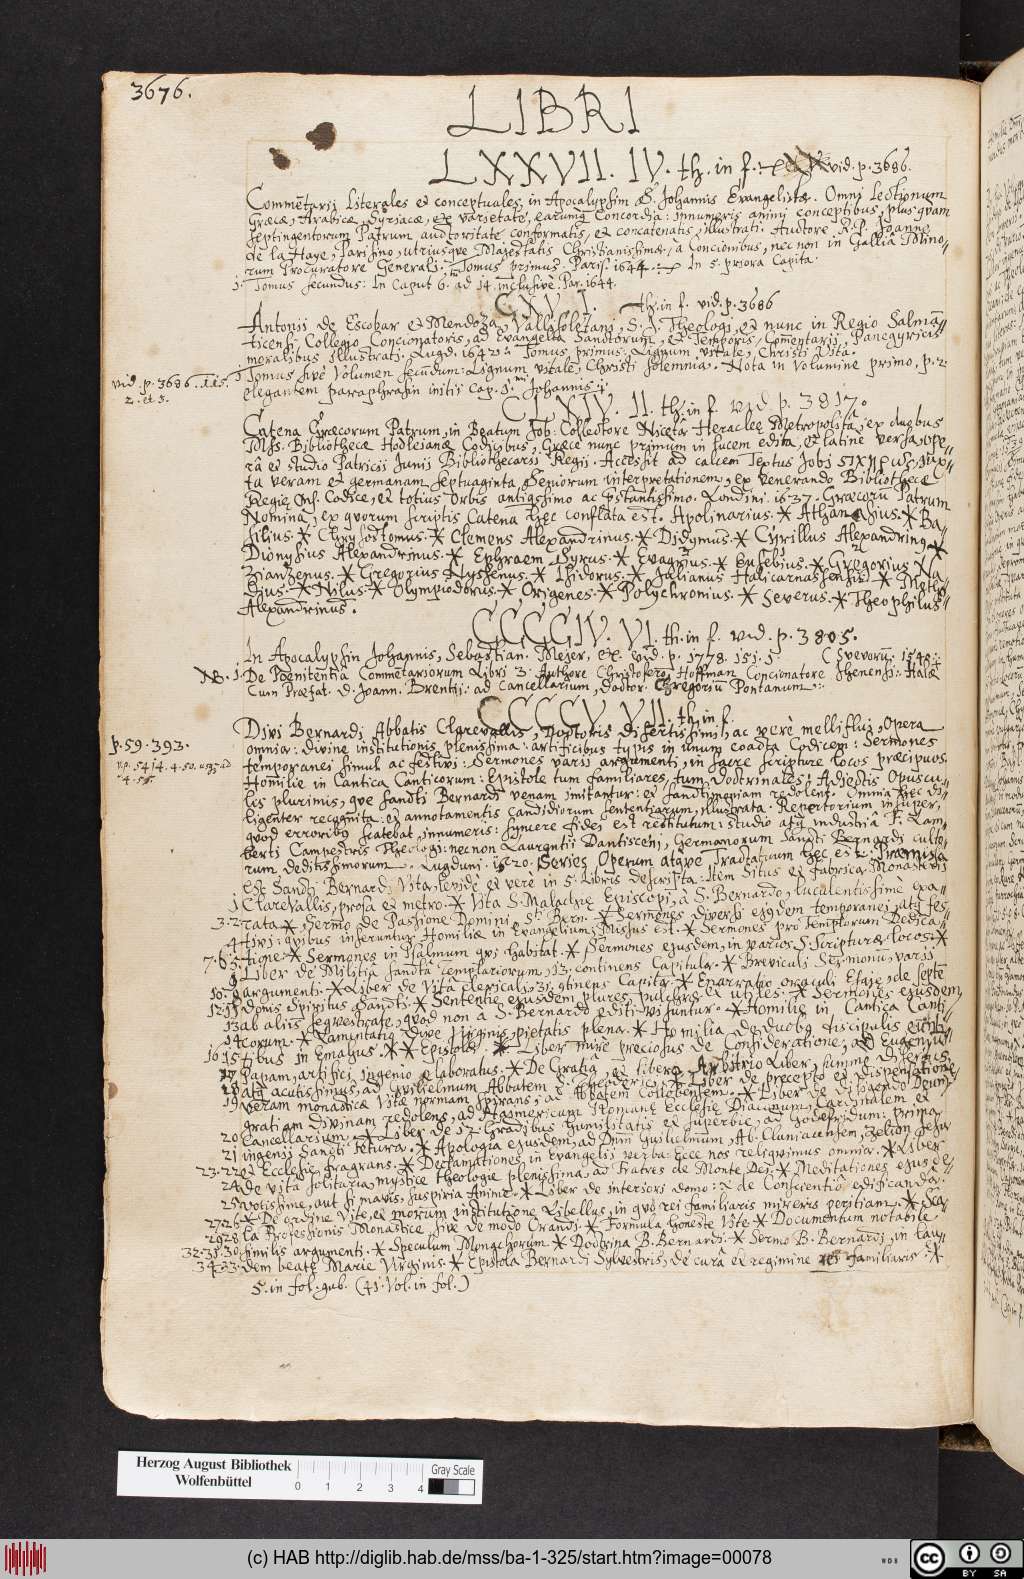 3676.
LIBRI
LXXVII. IV. th. in f. vid. p. 3686.
Commētarii literales et conceptuales, in Apocalypsim S. Johannis Evangelistæ. Omni Lectionum
Græcæ, Arabicæ, Syriacæ, ex varietate, earumq Concordia: innumeris animi conceptibus, plus quam
septingentorum Patrum auctoritate conformatis, et concatenatis, illustrati. Auctore R. P. Joanne
de la Haye, Parisino, utriusque Majestatis Christianissimæ, a Concionibus, nec non in Gallia Mino-
rum Procuratore Generali. Tomus primus. Paris. 1644. In 5. priora Capita.
1. Tomus secundus: In Caput 6. ad 14. inclusivè. Par. 1644.
CXVI. th. in f. vid. p. 3686
Antonii de Escobar et Mendoza, Vallisoletani, S. J. Theologi, et nunc in Regio Salmā-
ticensi, Collegio Concionatoris, ad Evangelia Sanctorum, et Temporis, Cōmentarii, Panegyricis
moralibus illustrati. Lugd. 1642. Tomus primus: Lignum vitale, Christi vita.
Tomus sive Volumen secūdum: Lignum vitale, Christi solemnia. Nota in Volumine primo, p. 2
vid. p. 3686. 115.
2. et 3.
elegantem paraphrasin initii cap. 1. Johannis
CLXIV. II. th. in f. vid. p. 3817.
Catena Græcorum Patrum, in Beatum Job: Collectore Nicetâ Heracleę Metropolita, ex duobus
Mss. Bibliothecæ Bodleianæ Codicibus, Græcè nunc primum in lucem edita, et latine versa, ope-
râ et studio Patricii Junii Bibliothecarii Regis. Accessit ad calcem Textus Jobi στιχηρως, jux-
ta veram et germanam septuaginta Seniorum interpretationem, ex venerando Bibliothecæ
Regię Ms. Codice, et totius Orbis antiqissimo ac pstantissimo. Londini. 1637. Græcorū Patrum
Nomina, ex quorum scriptis Catena hęc conflata est. Apolinarius. * Athanasius. * Ba-
silius. * Chrysostomus. * Clemens Alexandrinus. * Didymus. * Cyrillus Alexandrinq *
Dionysius Alexandrinus. * Ephraem Syrus. * Evagrius. * Eusebius. * Gregorius Na-
zianzenus. * Gregorius Nyssenus. * Isidorus. * Julianus Halicarnassensis * Metho-
dius. * Nilus. * Olympiodorus. * Origenes. * Polychronius. * Severus. * Theophilus
Alexandrinus.
CCCCIV. VI. th. in f. vid. p. 3805.
In Apocalypsin Johannis, Sebastian. Mejer, etc. vid. p. 1778. 151. 1. (Svevorū: 1548.
NB. 1. De Poenitentia Commetariorum Libri 3. Authore Christofero Hoffman Concionatore Jhenensi: Halæ
Cum Præfat. D. Joann. Brentii: ad Cancellarium, Doctor. Gregoriū Pontanum.
CCCCV. VII. th. in f.
Divi Bernardi Abbatis Clarevallis, Doctoris disertissimi, ac verè melliflui, Opera
p. 59. 393.
omnia: divine institutionis plenissima: artificibus typis in unum coacta Codicem: Sermones
temporanei simul ac festivi: Sermones varii argumenti, in sacre Scripture locos præcipuos.
Homilie in Cantica Canticorum: Epistole tum familiares, tum doctrinales: Adjectis Opuscu-
lis plurimis, que sancti Bernardi venam imitantur: et sanctimoniam redolent. Omnia hęc di-
ligenter recognita: et annotamentis candidiorum sententiarum, illustrata. Repertorium insuper,
quod erroribq scatebat innumeris: syncere fidei est restitutum: studio atq industriâ F. Lam-
berti Campestris Theologi: nec non Laurentii Dantiscen, Germanorum Sancti Bernardi culto-
rum deditissimorum. Lugduni. 1520. Series Operum atque Tractatuum hęc est: Præmissa
est Sancti Bernardi Vita, lepide et verè in 5. Libris descripta: Item Situs et fabrica Monasterii
1 Clarevallis, prosa et metro. * Vita S. Malachię Episcopi, à S. Bernardo, luculentissimè exa-
3. 2 rata * Sermo de Passione Domini, S. Bern. * Sermones diversi ejqdem temporanei, atq fes-
4 tivi: quibus inseruntur Homiliæ in Evangelium, Missus est. * Sermones pro Templorum Dedica-
7. 6. 5 tione * Sermones in Psalmum qui habitat. * Sermones ejusdem, in varios S. Scripturæ locos. *
8 Liber de Militiâ sanctâ Templariorum, 13. continens Capitula. * Breviculi Sermonū, varii
10. 9 argumenti. * Liber de Vitâ Clericali, 31. cōtinens Capita * Enarratio oraculi Esaie, de septē
12. 11 donis Spiritus Sancti. * Sententie ejusdem plures, pulchræ et utiles. * Sermones ejusdem
13 ab aliis sequestrate, quod non à S. Bernardo editi visuntur. * Homilie in Cantica Canti-
14 corum. * Lamentatio Dive Virginis, pietatis plena. * Homilia de duobq discipulis eunti-
16. 15 tibus in Emaus. * * Epistolæ. * Liber mirè preciosus de Consideratione, ad Eugeniū
17 Papam, artifici ingenio elaboratus. * De Gratiâ, et libero Arbitrio Liber, summe disertus,
18 atq acutissimus, ad Guilielmum Abbatem S. Theoderici. * Liber de precepto et dispensatione,
19 veram monasticæ Vitæ normam spirans, ad Abbatem Columbensem. * Liber de diligendo Deum,
gratiam divinam redolens, ad Haimericum Romanę Ecclesię Diaconum, Cardinalem et
20 Cancellarium. * Liber de 12. Gradibus humilitatis et superbie, ad Godefridum: prima
21 ingenii Sancti fetura. * Apologia ejusdem, ad Dnm Guilielmum, Ab. Cluniacensem, zelum sepu
23. 22 Ecclesię fragrans. * Declamationes in Evangelii verba: Ecce nos reliquimus omnia. * Liber
24 de vita solitaria, mystice theologie plenissima, ad Fratres de Monte Dei. * Meditationes ejus de-
25 votissime, aut si mavis, suspiria Anime. * Liber de interiori domo: de Conscientiâ edificanda.
27. 26 * De ordine Vite, et morum institutione Libellus, in quo rei familiaris mireris peritiam. *
29. 28 la Professionis Monastice, sive de modo Orandi. * Formula honeste Vite * Documentum notabile
32. 31. 30 similis argumenti. * Speculum Monachorum. * Doctrina B. Bernardi. * Sermo B. Bernardi, in lau-
34. 33 dem beatę Marie Virginis. * Epistola Bernardi Sylvestris, de curâ et regimine rei familiaris *
5. in fol. gub. (41. Vol. in fol.)
Herzog August Bibliothek
Wolfenbüttel
0 1 2 3 4
Gray Scale
(c) HAB http://diglib.hab.de/mss/ba-1-325/start.htm?image=00078
WDB
cc BY SA